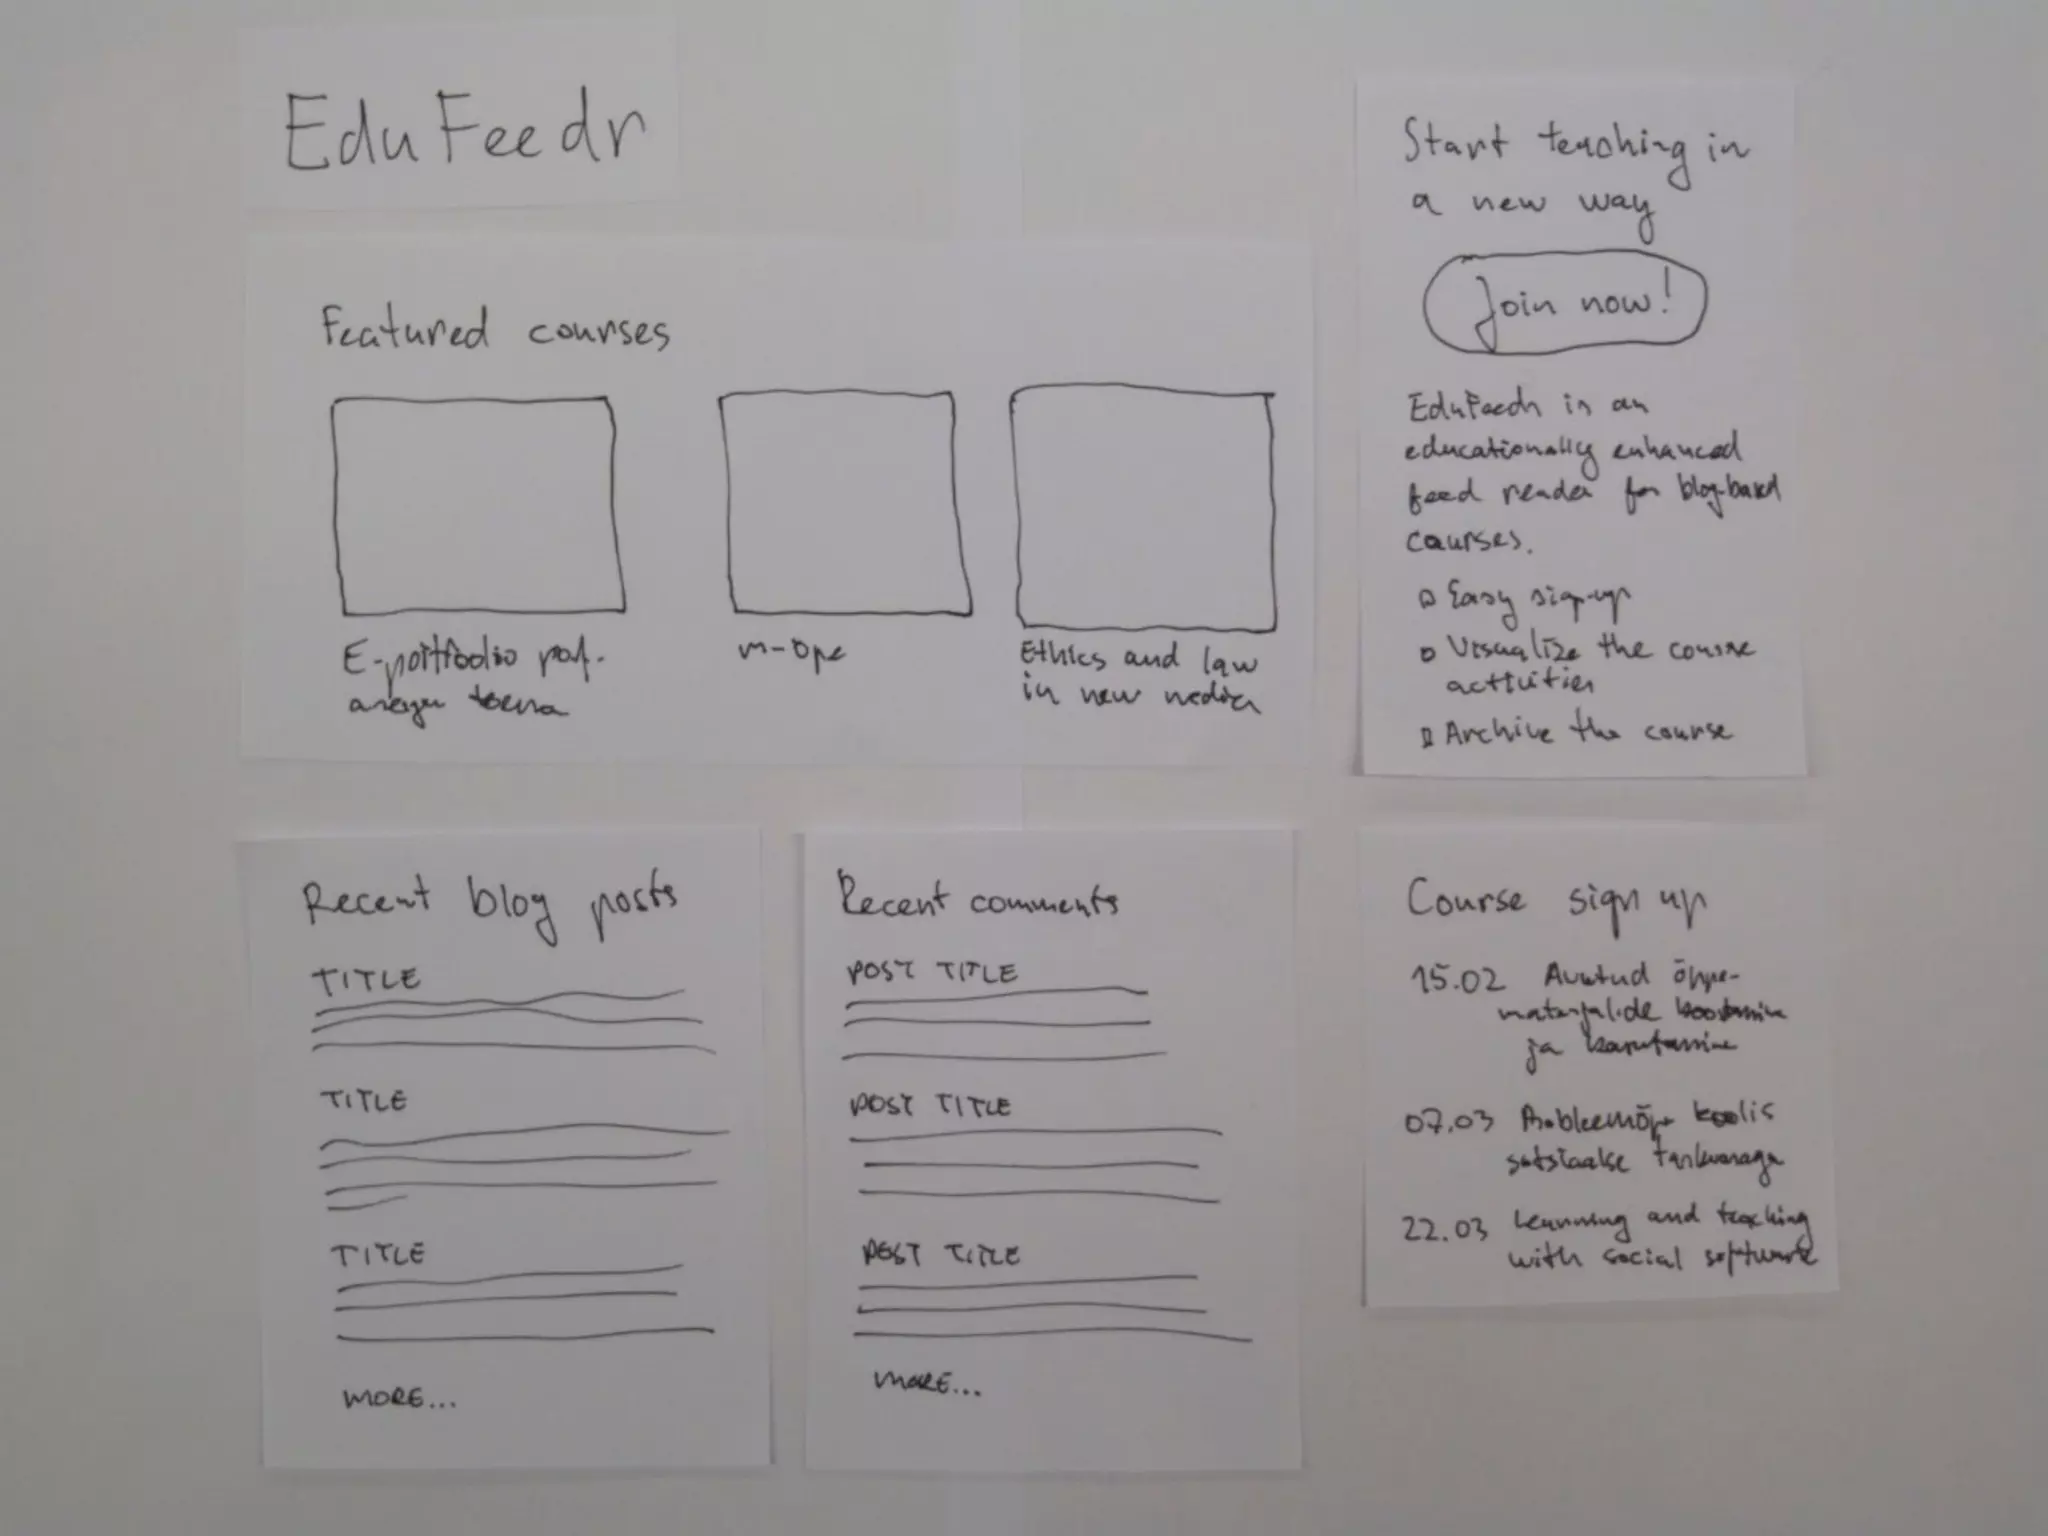 EduFeedr
Featured courses
E-portfoolio
m-Ope
Ethics and law
in new media
Start teaching in
a new way
Join now!
EduFeedr is an
educationally enhanced
feed reader for blog-based
courses.
Easy sign-up
Visualize the course
activities
Archive the course
Recent blog posts
TITLE
TITLE
TITLE
MORE...
Recent comments
POST TITLE
POST TITLE
POST TITLE
MORE...
Course sign up
15.02 Avatud õppe-
materjalide koostamine
ja kasutamine
07.03 Probleemõpe koolis
sotsiaalse tarkvaraga
22.03 Learning and teaching
with social software